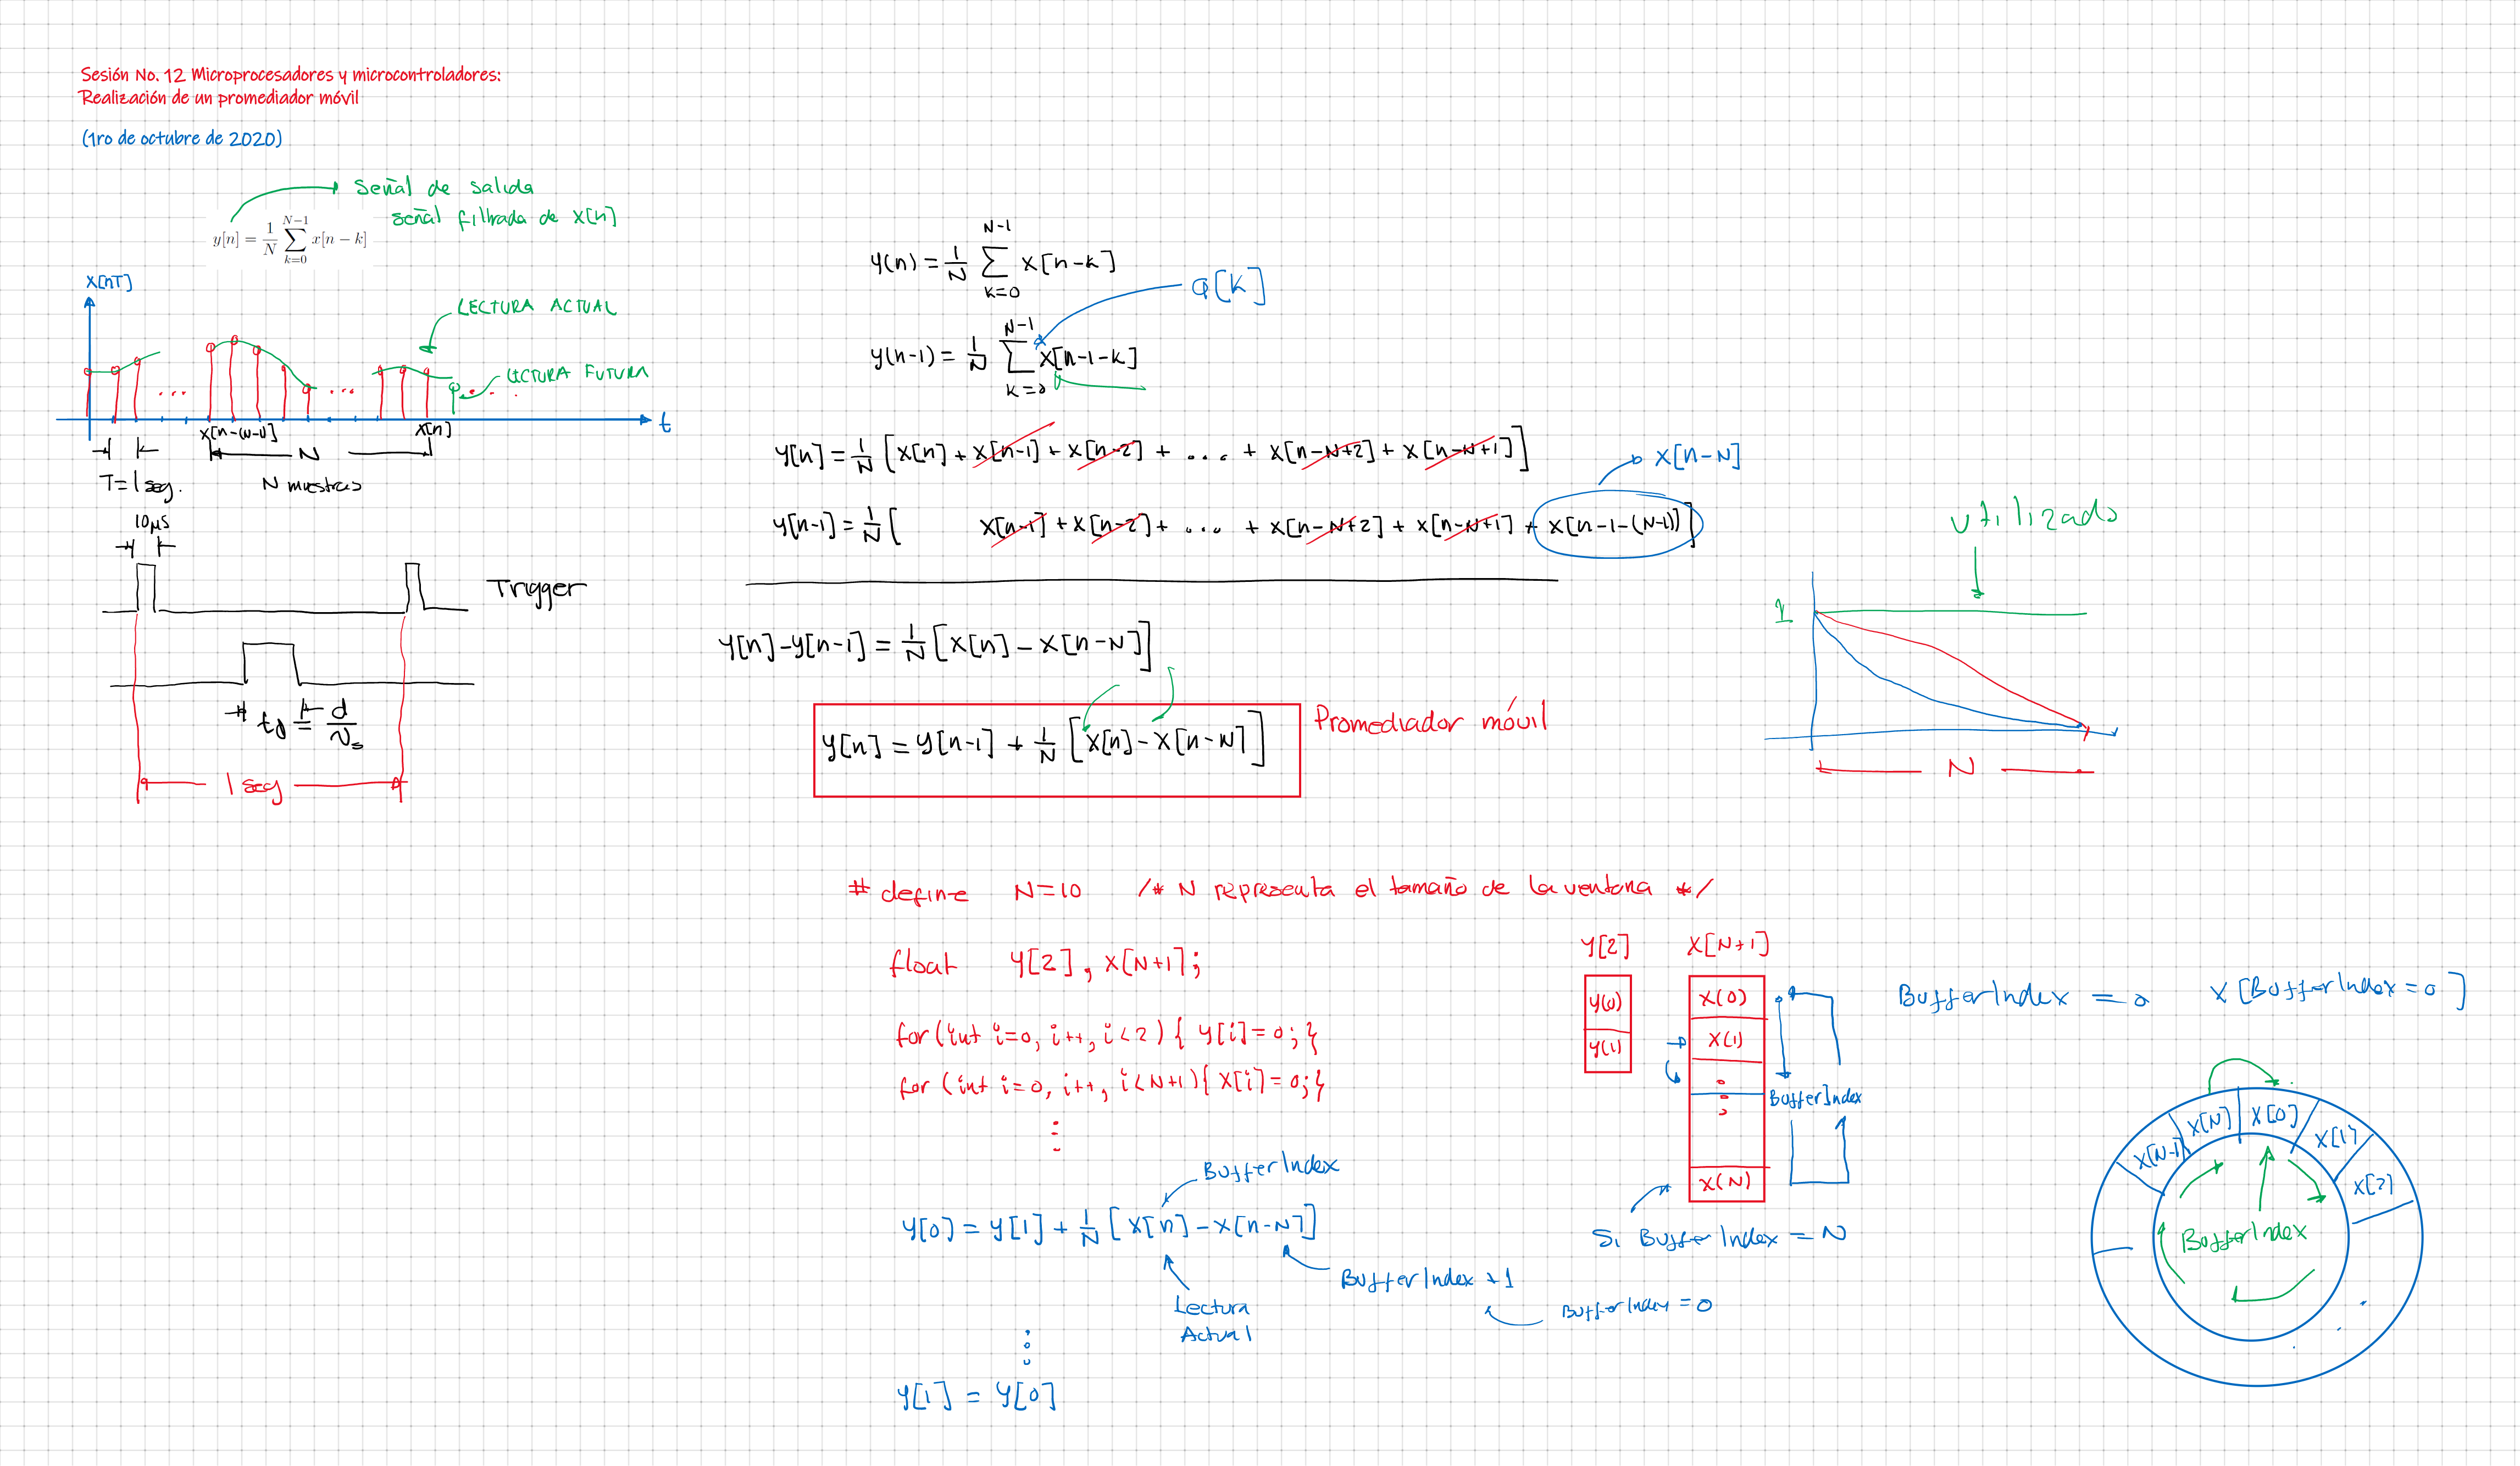 Sesión No. 12 Microprocesadores y microcontroladores:
Realización de un promediador móvil
(1ro de octubre de 2020)
Señal de salida
señal filtrada de x[n]
y[n] = \frac{1}{N} \sum_{k=0}^{N-1} x[n-k]
x[nT]
LECTURA ACTUAL
LECTURA FUTURA
t
x[n-(N-1)]
x[n]
N
T=1seg.
N muestras
10μs
Trigger
t_d = \frac{d}{v_s}
1 seg
y(n) = \frac{1}{N} \sum_{k=0}^{N-1} x[n-k]
a[k]
y(n-1) = \frac{1}{N} \sum_{k=0}^{N-1} x[n-1-k]
y[n] = \frac{1}{N} [x[n] + x[n-1] + x[n-2] + ... + x[n-N+2] + x[n-N+1]]
x[n-N]
y[n-1] = \frac{1}{N} [ x[n-1] + x[n-2] + ... + x[n-N+2] + x[n-N+1] + x[n-1-(N-1)]]
y[n]-y[n-1] = \frac{1}{N} [x[n] - x[n-N]]
y[n] = y[n-1] + \frac{1}{N} [x[n] - x[n-N]]
Promediador móvil
utilizado
1
N
# define N=10 /* N representa el tamaño de la ventana */
float y[2], x[N+1];
for(int i=0, i++, i<2) { y[i]=0; }
for (int i=0, i++, i<N+1){ x[i]=0; }
BufferIndex
y[0] = y[1] + \frac{1}{N} [x[n] - x[n-N]]
BufferIndex +1
Lectura
Actual
BufferIndex = 0
y[1] = y[0]
y[2]
x[N+1]
y(0)
y(1)
x(0)
x(1)
x(N)
BufferIndex
Si BufferIndex = N
BufferIndex = 0
x[BufferIndex=0]
x[N-1]
x[N]
x[0]
x[1]
x[2]
BufferIndex